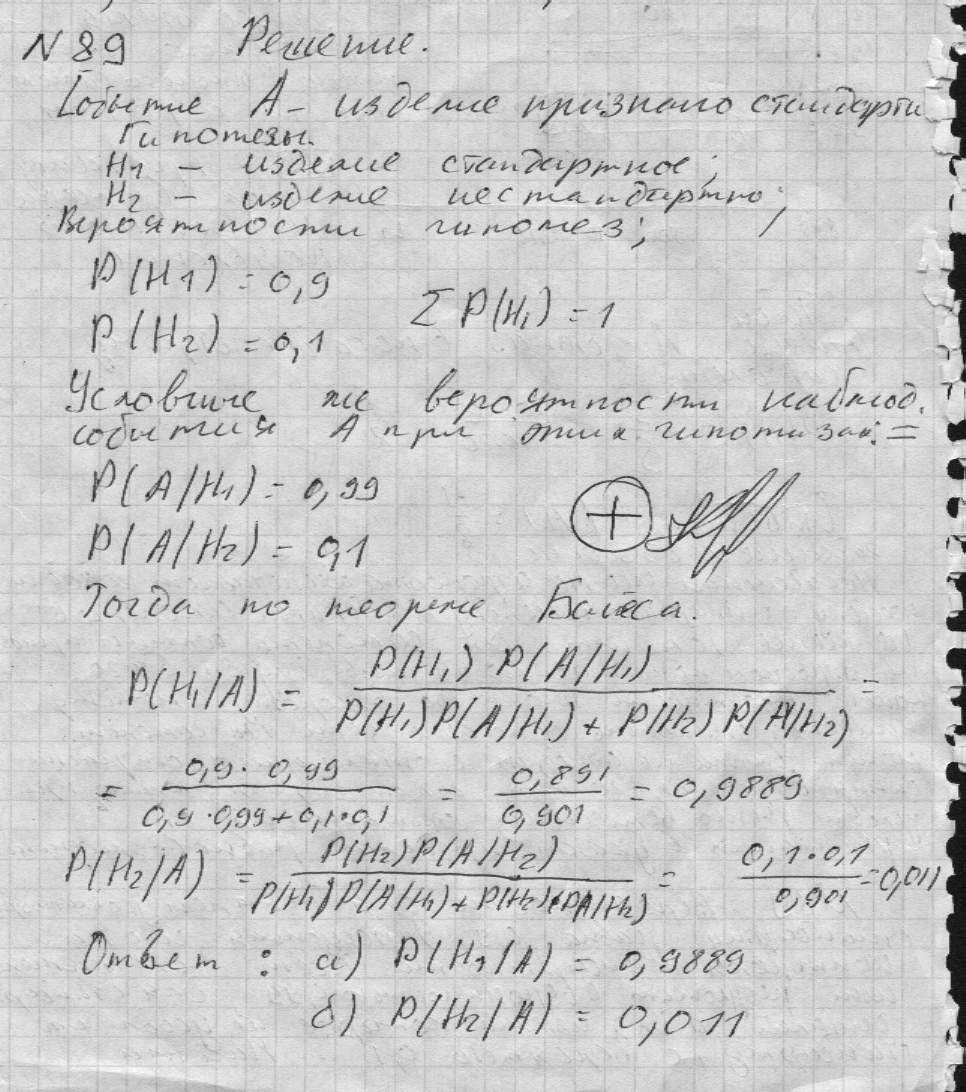 N 89 Решение.
Событие A - изделие признано стандартн
Гипотезы.
H1 - изделие стандартное;
H2 - изделие нестандартно;
Вероятности гипотез;
P(H1) = 0,9
P(H2) = 0,1
Σ P(H1) = 1
Условные же вероятности наблюд.
события A при этих гипотизах: =
P(A/H1) = 0,99
P(A/H2) = 0,1
+
Тогда по теореме Байеса.
P(H1/A) = P(H1) P(A/H1) / P(H1)P(A/H1) + P(H2) P(A/H2) =
= 0,9 · 0,99 / 0,9 · 0,99 + 0,1 · 0,1 = 0,891 / 0,901 = 0,9889
P(H2/A) = P(H2)P(A/H2) / P(H1)P(A/H1) + P(H2)·P(A/H2) = 0,1 · 0,1 / 0,901 = 0,011
Ответ : а) P(H1/A) = 0,9889
б) P(H2/A) = 0,011